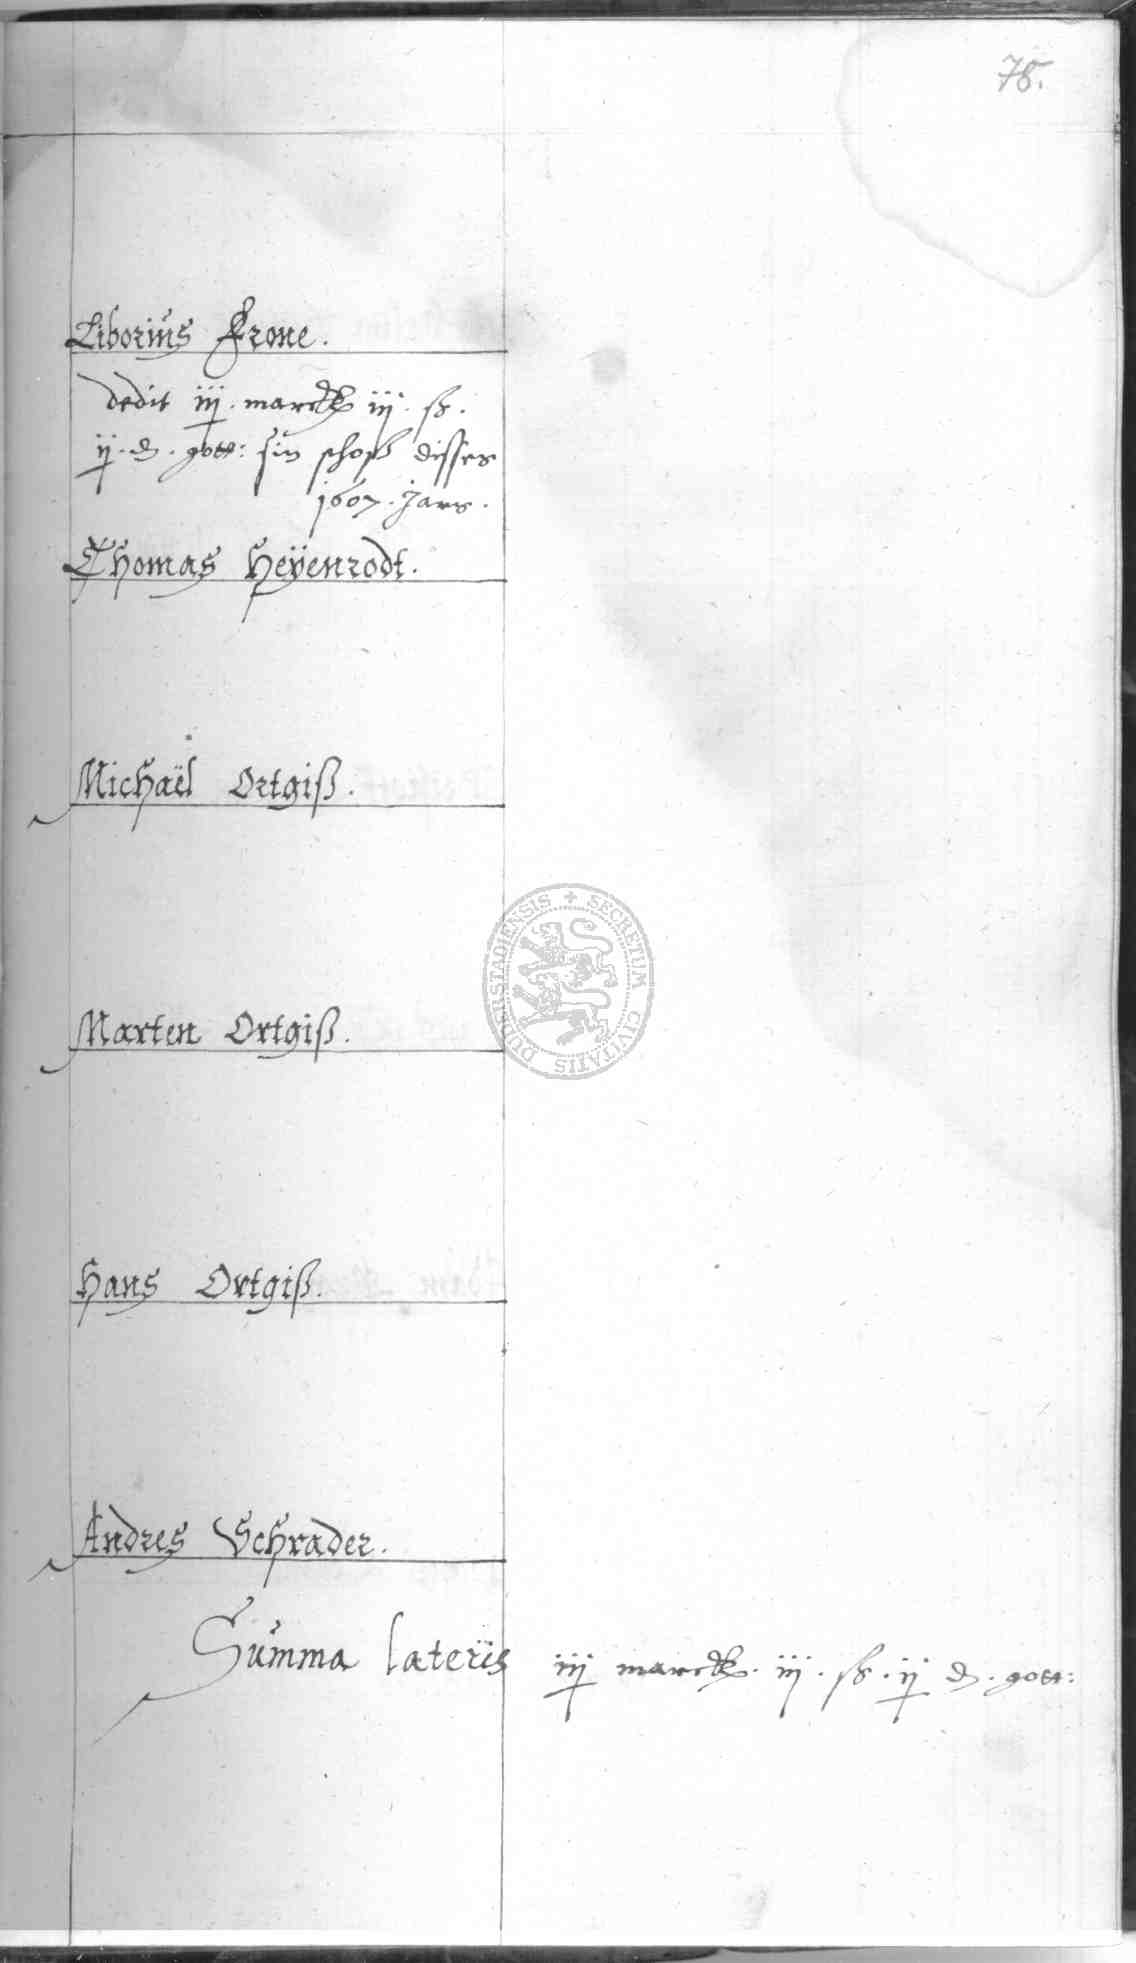 78.
Liborius Krone.
dedit iij. marck iij. ß.
ij. d. gott: sin schoß disses
1607. Jars.
Thomas Heÿenrodt.
Michaël Ortgiß.
Marten Ortgiß.
DUDERSTADIENSIS + SECRETUM CIVITATIS
Hans Ortgiß.
Andres Schrader.
Summa lateris iij marck. iij. ß. ij d. gott: